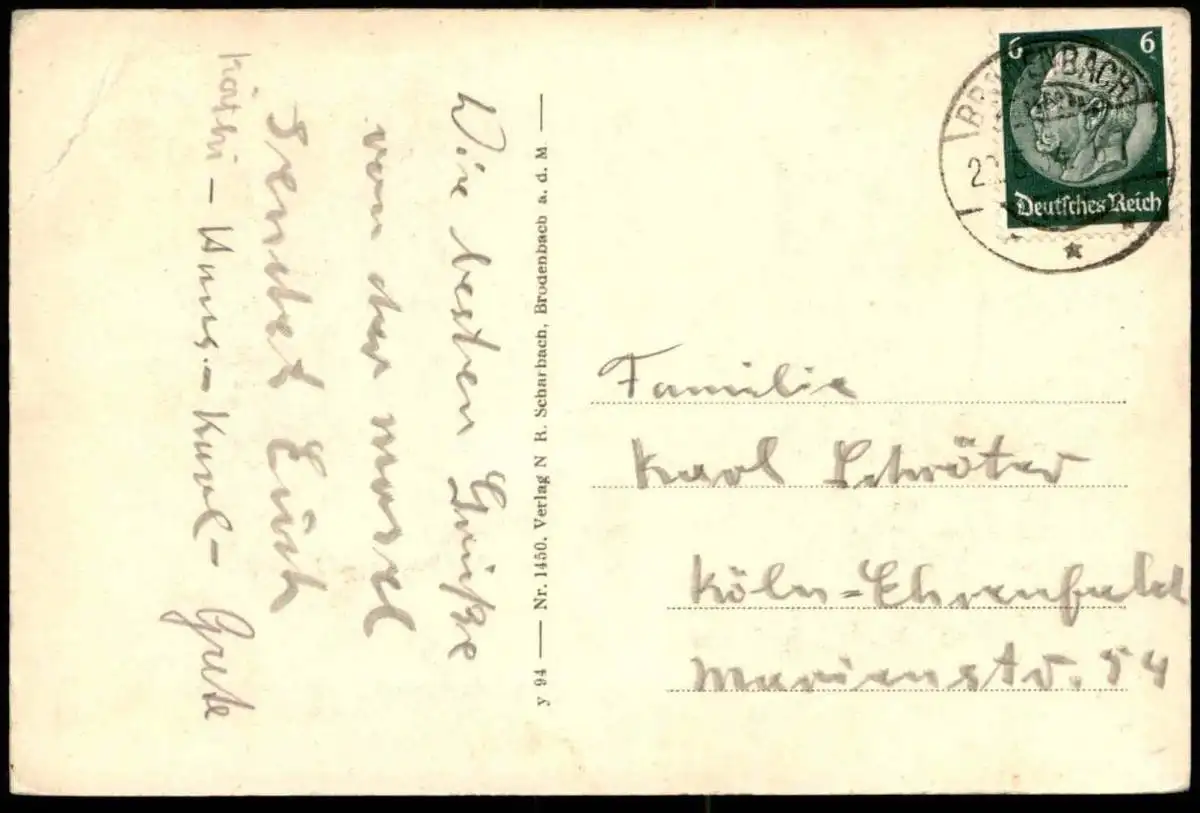 Die besten Grüße
von der Mosel
sendet Euch
Käthi – Hans. – Karl – Grete
y 94 — Nr. 1450. Verlag N R. Scharbach, Brodenbach a. d. M —
6 6
Deutsches Reich
Familie
Karl Schröter
Köln=Ehrenfeld
Marienstr. 54